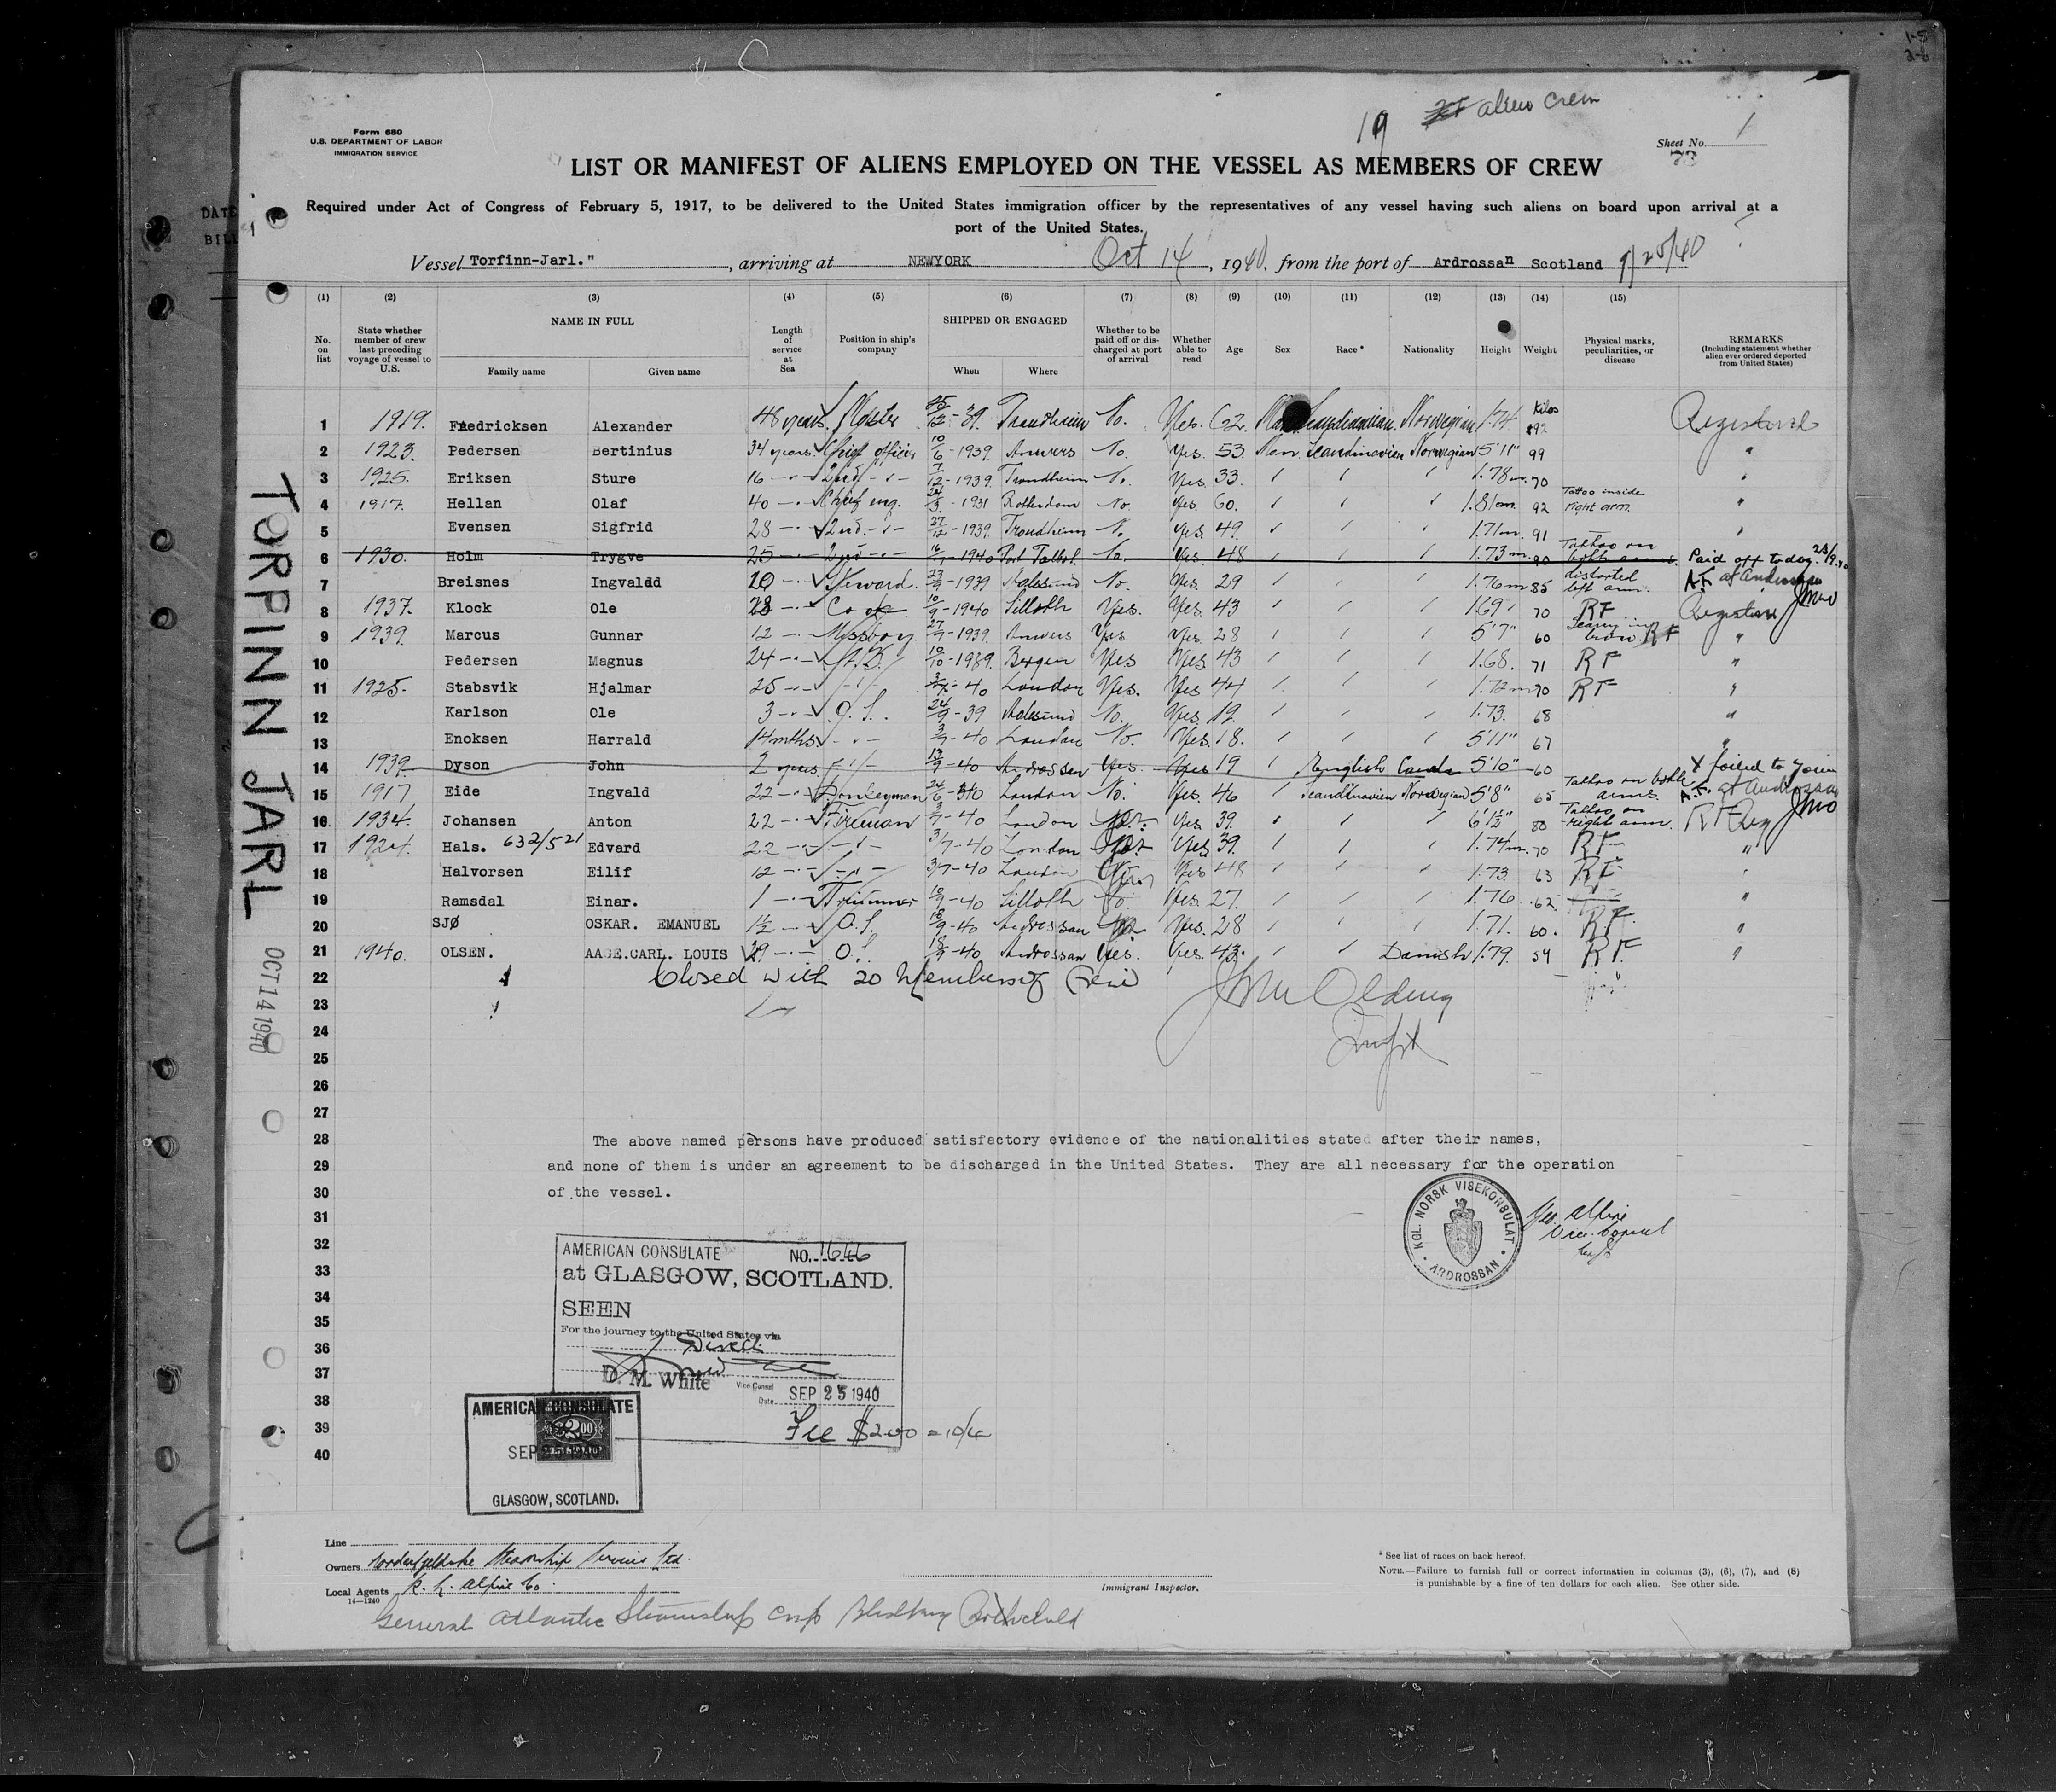 1-5
2-6
19 alien crew
Form 680
U.S. DEPARTMENT OF LABOR
IMMIGRATION SERVICE
Sheet No. 1
LIST OR MANIFEST OF ALIENS EMPLOYED ON THE VESSEL AS MEMBERS OF CREW
DATE
BILL
Required under Act of Congress of February 5, 1917, to be delivered to the United States immigration officer by the representatives of any vessel having such aliens on board upon arrival at a
port of the United States.
Vessel Torfinn-Jarl." , arriving at NEWYORK Oct 14 , 1940, from the port of Ardrossan Scotland 9/25/40
(1) (2) (3) (4) (5) (6) (7) (8) (9) (10) (11) (12) (13) (14) (15)
No. on list
State whether member of crew last preceding voyage of vessel to U.S.
NAME IN FULL
Family name Given name
Length of service at Sea
Position in ship's company
SHIPPED OR ENGAGED
When Where
Whether to be paid off or discharged at port of arrival
Whether able to read
Age Sex Race* Nationality Height Weight
Physical marks, peculiarities, or disease
REMARKS
(Including statement whether alien ever ordered deported from United States)
1 1919. Fredricksen Alexander 48 years. Master 12-39. Trondheim No. Yes. 62. Scandinavian Norwegian 1.74 Kilos 92 Registered
2 1923. Pedersen Bertinius 34 years. Chief officer 10/6-1939 Anvers No. Yes. 53. Man. Scandinavian Norwegian 5'11" 99 "
3 1925. Eriksen Sture 16 -"- 2nd -"- 7/12-1939 Trondheim No. Yes. 33. 1.78 m. 70 "
4 1917. Hellan Olaf 40 -"- Chief eng. 1931 Rotterdam No. Yes. 60. 1.81 m. 92 Tattoo inside right arm. "
5 Evensen Sigfrid 28 -"- 2nd -"- 27/12-1939. Trondheim No. Yes. 49. 1.71 m. 91 "
6 1930. Holm Trygve 25 -"- 2nd -"- 16/9-1940 Port Talbot. No. Yes. 48 1.73 m. 90 Tattoo on both arms. Paid off today. 25/9.40
7 Breisnes Ingvaldd 10 -"- Steward. 1939 Aalesund No. Yes. 29 1.76 m 85 distorted left arm. at Ardrossan
8 1937. Klock Ole 28 -"- Cook 10/9-1940 Silloth Yes. Yes. 43 1.69 70 RF Registered
9 1939. Marcus Gunnar 12 -"- Messboy. 27/7-1939. Anvers Yes. Yes. 28 5'7" 60 RF "
10 Pedersen Magnus 24 -"- A.B. 10/10-1939. Bergen Yes Yes 43 1.68. 71 RF "
11 1925. Stabsvik Hjalmar 25 -"- -"- 40 London Yes. Yes 44 1.72 m 70 RF "
12 Karlson Ole 3 -"- O.S. 24/9-39 Aalesund No. Yes. 19. 1.73. 68 "
13 Enoksen Harrald 14 mths. -"- 3/7-40 London No. Yes. 18. 5'11" 67 "
14 1939 Dyson John 2 years. -"- 13/9-40 Ardrossan Yes. Yes 19 English 5'10" 60 X failed to join
15 1917 Eide Ingvald 22 -"- Donkeyman 24/6-40 London No. Yes. 46 Scandinavian Norwegian 5'8" 65 Tattoo on both arms. at Ardrossan
16 1934. Johansen Anton 22 -"- Fireman 3/7-40 London Yes 39. 80 Tattoo on right arm. RF Reg
17 1924. Hals. 632/521 Edvard 22 -"- -"- 3/7-40 London Yes 39. 1.74 m. 70 RF "
18 Halvorsen Eilif 12 -"- -"- 3/7-40 London Yes 48 1.73. 63 RF "
19 Ramsdal Einar. 1 -"- Trimmer 10/9-40 Silloth No. Yes. 27. 1.76 62. "
20 SJØ OSKAR. EMANUEL 1½ -"- O.S. 18/9-40 Ardrossan Yes. 28 1.71. 60. RF. "
21 1940. OLSEN. AAGE.CARL. LOUIS 29 -"- O.S. 18/9-40 Ardrossan Yes. Yes. 43. Danish 1.79. 59 RF. "
22 Closed with 20 Members of Crew
23
24
25
26
27
28 The above named persons have produced satisfactory evidence of the nationalities stated after their names,
29 and none of them is under an agreement to be discharged in the United States. They are all necessary for the operation
30 of the vessel.
31
32
33
34
35
36
37
38
39
40
TORFINN JARL
OCT 14 1940
KGL. NORSK VISEKONSULAT
ARDROSSAN
Vice Consul
AMERICAN CONSULATE NO. 1646
at GLASGOW, SCOTLAND.
SEEN
For the journey to the United States via
Direct
D. M. White Vice Consul
Date SEP 25 1940
Fee $2.00 = 10/-
AMERICAN CONSULATE
$2.00
SEP
GLASGOW, SCOTLAND.
Line
Owners Nordenfjeldske Steamship Services Ltd.
Local Agents R. L. Alpine Co.
14-1240
Immigrant Inspector.
* See list of races on back hereof.
NOTE.—Failure to furnish full or correct information in columns (3), (6), (7), and (8)
is punishable by a fine of ten dollars for each alien. See other side.
General Atlantic Steamship Corp